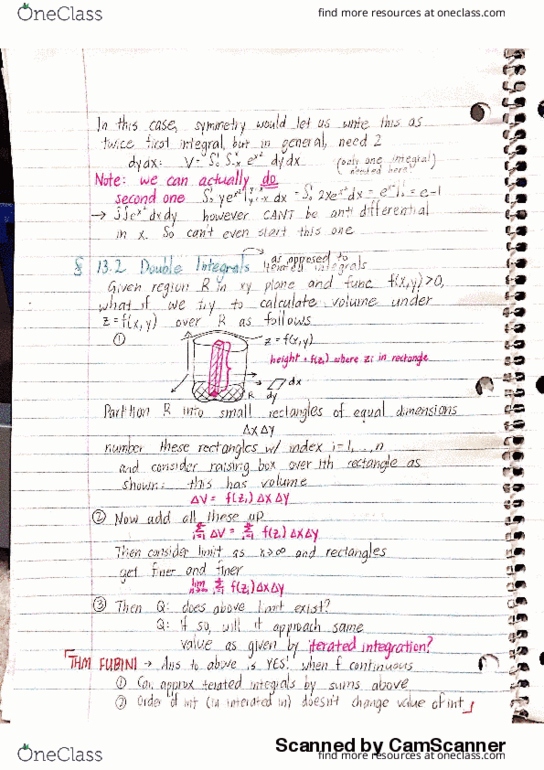 OneClass
find more resources at oneclass.com
In this case, symmetry would let us write this as
twice first integral, but in general, need 2
dydx: V = ∫₀¹ ∫₋ₓˣ e^(x²) dydx (only one integral
needed here)
Note: we can actually do
second one ∫₀¹ ye^(x²) dx = ∫₀¹ 2xe^(x²) dx = e^(x²)|₀¹ = e-1
→ ∫∫e^(x²)dxdy however CANT be anti differential
in x. So can't even start this one
as opposed to
§ 13.2 Double Integrals iterated integrals
Given region R in xy plane and func f(x,y)>0,
what if we try to calculate volume under
z=f(x,y) over R as follows
①
z = f(x,y)
height = f(zi) where zi in rectangle
R dy dx
Partition R into small rectangles of equal dimensions
ΔxΔy
number these rectangles w/ index i=1,...,n
and consider raising box over ith rectangle as
shown: this has volume
ΔV = f(zi) ΔxΔy
② Now add all these up
Σ ΔV = Σ f(zi) ΔxΔy
Then consider limit as n→∞ and rectangles
get finer and finer
lim Σ f(zi)ΔxΔy
③ Then Q: does above limit exist?
Q: if so, will it approach same
value as given by iterated integration?
THM FUBINI → Ans to above is YES! when f continuous
① Can approx iterated integrals by sums above
② Order of int (in interated in) doesn't change value of int
Scanned by CamScanner
OneClass
find more resources at oneclass.com